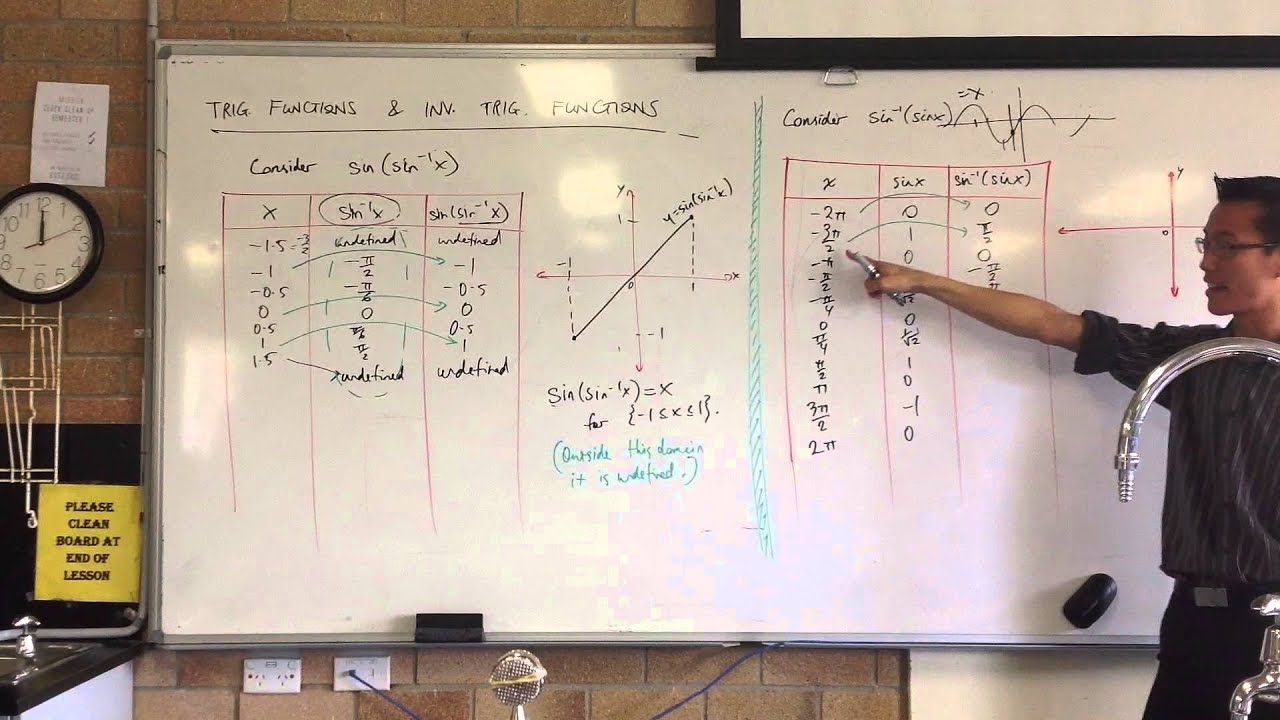 TRIG. FUNCTIONS & INV. TRIG. FUNCTIONS
Consider sin(sin⁻¹x)
x sin⁻¹x sin(sin⁻¹x)
-1.5 = -3/2 undefined undefined
-1 -π/2 -1
-0.5 -π/6 -0.5
0 0 0
0.5 π/6 0.5
1 π/2 1
1.5 undefined undefined
y
y=sin(sin⁻¹x)
1
-1
0
x
-1
sin(sin⁻¹x)=x
for {-1≤x≤1}.
(Outside this domain
it is undefined.)
Consider sin⁻¹(sinx)
=x
x sinx sin⁻¹(sinx)
-2π 0 0
-3π/2 1 π/2
-π 0 0
-π/2 -π/2
-π/4
0 0
π/4 1/√2
π/2 1
π 0
3π/2 -1
2π 0
y
0
PLEASE
CLEAN
BOARD AT
END OF
LESSON